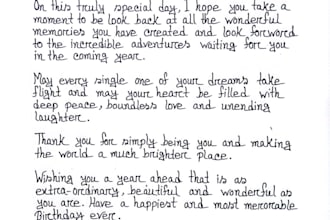 On this truly special day, I hope you take a
moment to be look back at all the wonderful
memories you have created and look forward
to the incredible adventures waiting for you
in the coming year.
May every single one of your dreams take
flight and may your heart be filled with
deep peace, boundless love and unending
laughter.
Thank you for simply being you and making
the world a much brighter place.
Wishing you a year ahead that is as
extra-ordinary, beautiful and wonderful as
you are. Have a happiest and most memorable
Birthday ever.